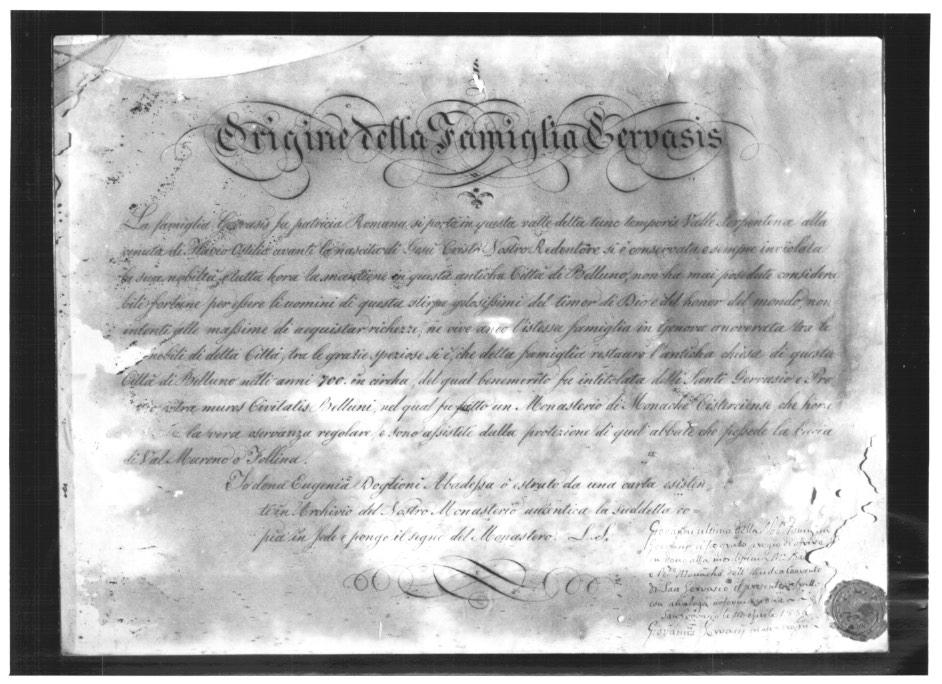 Origine della Famiglia Gervasis
La famiglia Gervasis fu patricia Romana, si portò in questa valle detta tunc temporis Valle Serpentina alla
venuta di Flavio Ostilio avanti la nascita di Gesù Cristo Nostro Redentore si è conservata e sempre inviolata
la sua nobiltà, e tutta hora la mantiene in questa anticha Città di Belluno, non ha mai posedute considera
bili fortune per essere li uomini di questa stirpe gelosissimi del timor di Dio e del honor del mondo, non
intenti alle massime di acquistar richezze, ne vive anco l'istessa famiglia in Genova anoverata tra le
nobili di detta Città, tra le grazie speziose si è, che detta famiglia restaurò l'anticha chiesa di questa
Città di Belluno nelli anni 700. in circha, del qual benemerito fu intitolata delli Santi Gervasio e Pro
extra muros Civitatis Belluni, nel qual fu fatto un Monasterio di Monache Cisterciense che hora
la vera oservanza regolare, e sono assistite dalla protezione di quel abbate che possede la
di Val Mareno o Follina.
Io dona Eugenia Doglioni Abadessa ò estrato da una carta esisten
te in Archivio del Nostro Monasterio autentica la suddetta co
pia in fede e pongo il segno del Monastero. L. S.
Giovanni ultimo della
in dono alla
e Monache dell' Convento
di San Gervasio il presente
con analoga
Giovanni